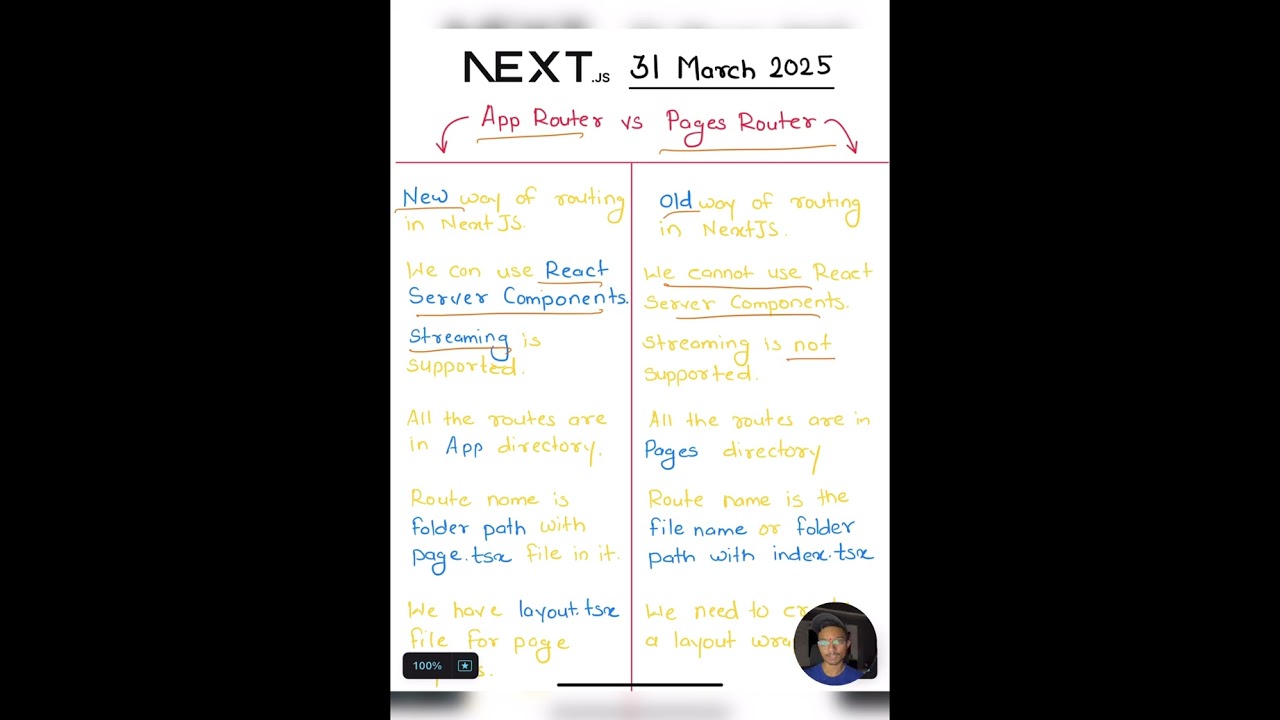 NEXT.JS 31 March 2025
App Router vs Pages Router
New way of routing
in NextJS.
We can use React
Server Components.
Streaming is
supported.
All the routes are
in App directory.
Route name is
folder path with
page.tsx file in it.
We have layout.tsx
file for page
Old way of routing
in NextJS.
We cannot use React
Server Components.
Streaming is not
supported.
All the routes are in
Pages directory
Route name is the
file name or folder
path with index.tsx
We need to
a layout
100%